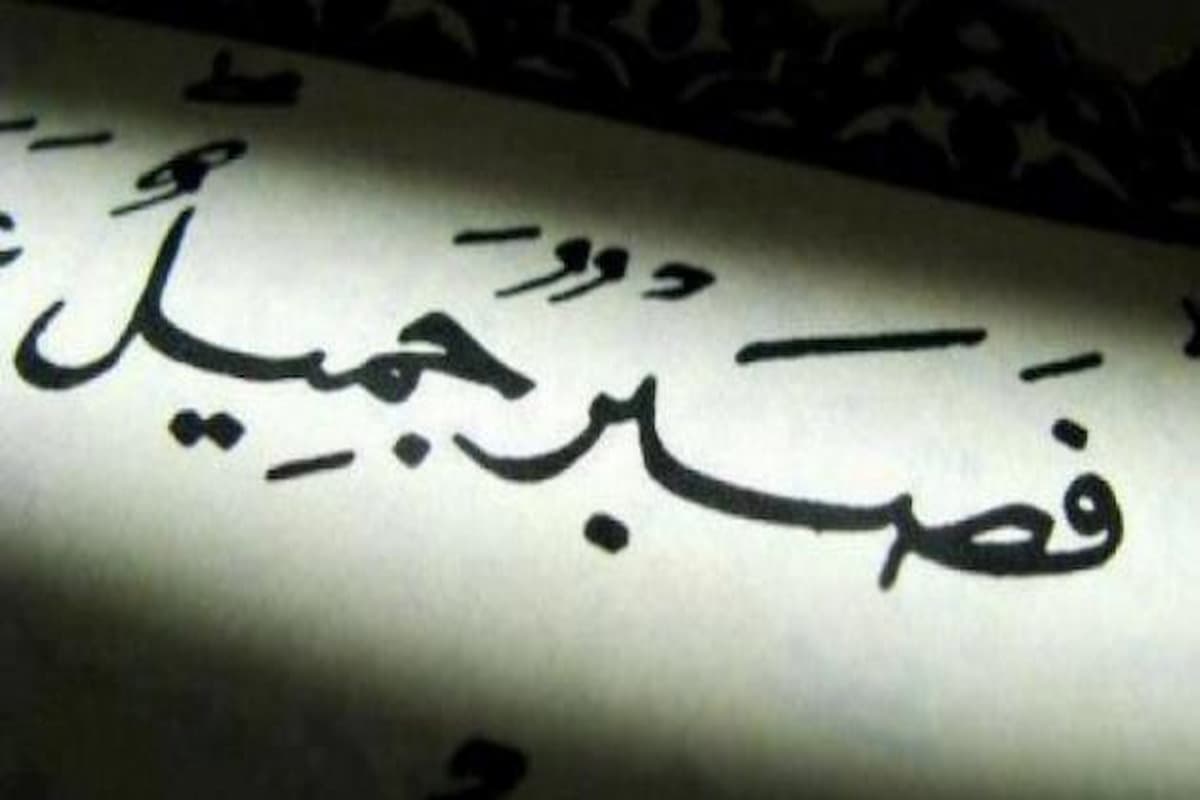 فَصَبْرٌ جَمِيلٌ